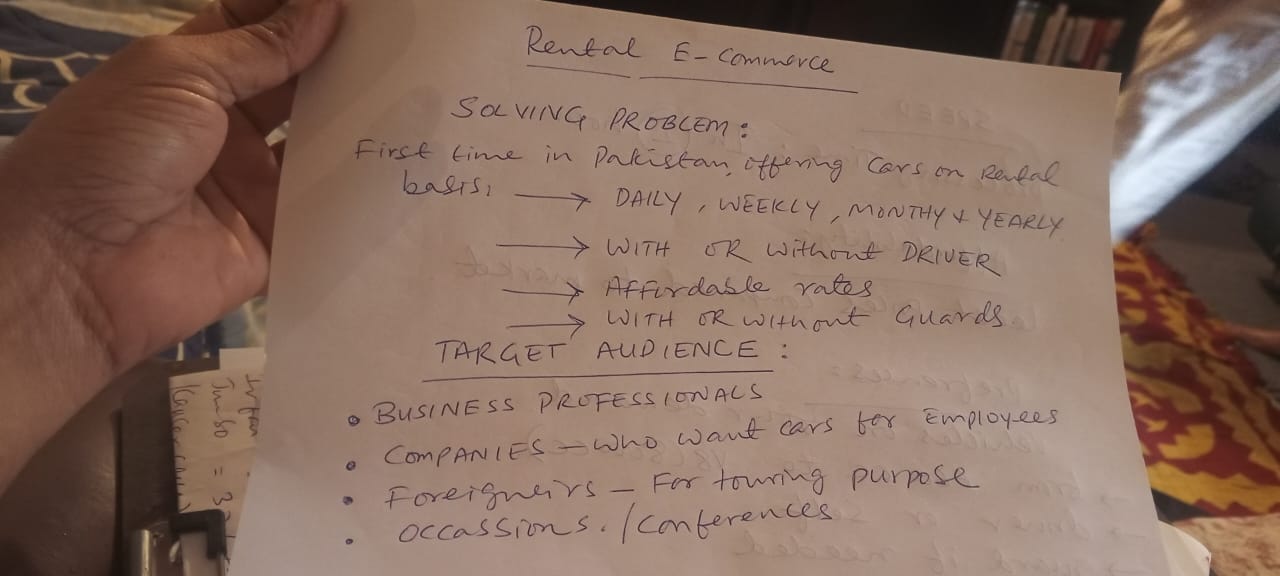 Rental E-Commerce
SOLVING PROBLEM:
First time in Pakistan, offering Cars on Rental
basis, → DAILY, WEEKLY, MONTHY & YEARLY
→ WITH OR Without DRIVER
→ Affordable rates
→ WITH OR Without Guards.
TARGET AUDIENCE :
• BUSINESS PROFESSIONALS
• COMPANIES – who want cars for Employees
• Foreigneirs – For touring purpose
• occassions./Conferences